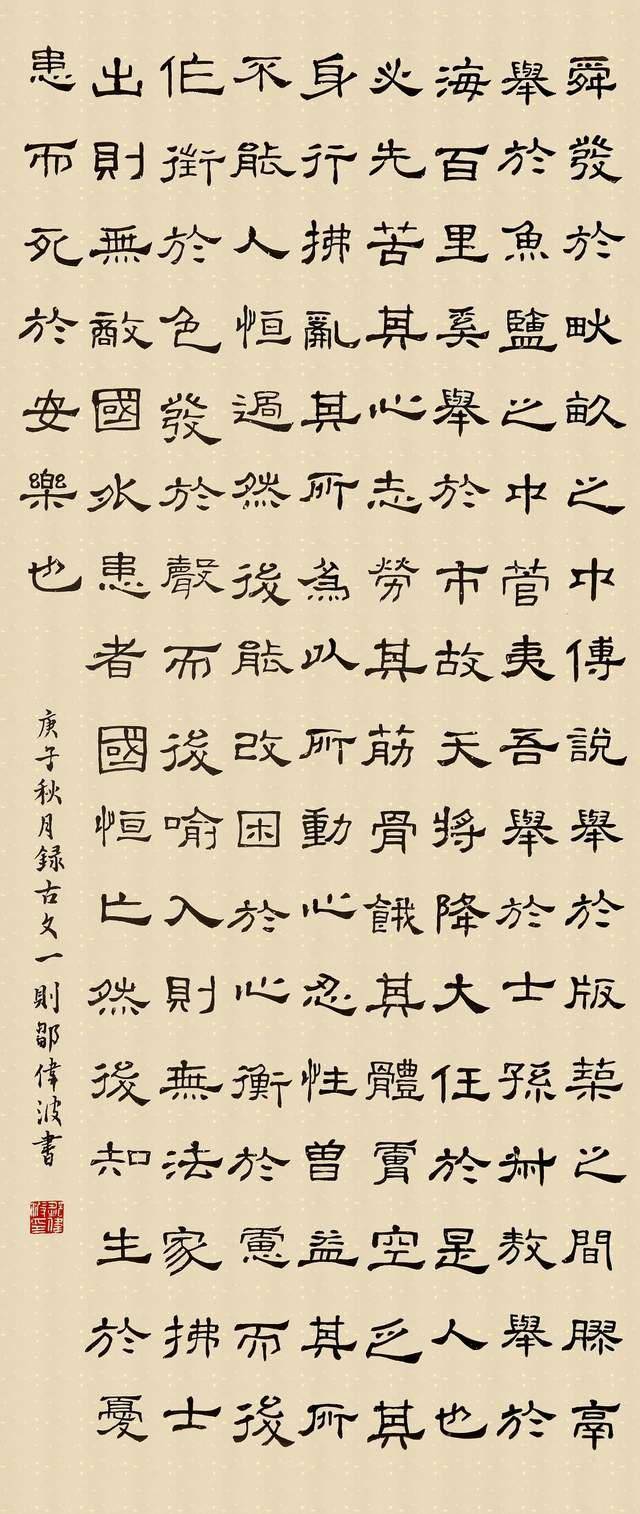 舜發於畎畝之中傅說舉於版築之間膠鬲
舉於魚鹽之中管夷吾舉於士孫叔敖舉於
海百里奚舉於市故天將降大任於是人也
必先苦其心志勞其筋骨餓其體膚空乏其
身行拂亂其所為以所動心忍性曾益其所
不能人恒過然後能改困於心衡於慮而後
作徵於色發於聲而後喻入則無法家拂士
出則無敵國外患者國恒亡然後知生於憂
患而死於安樂也
庚子秋月録古文一則鄒偉波書